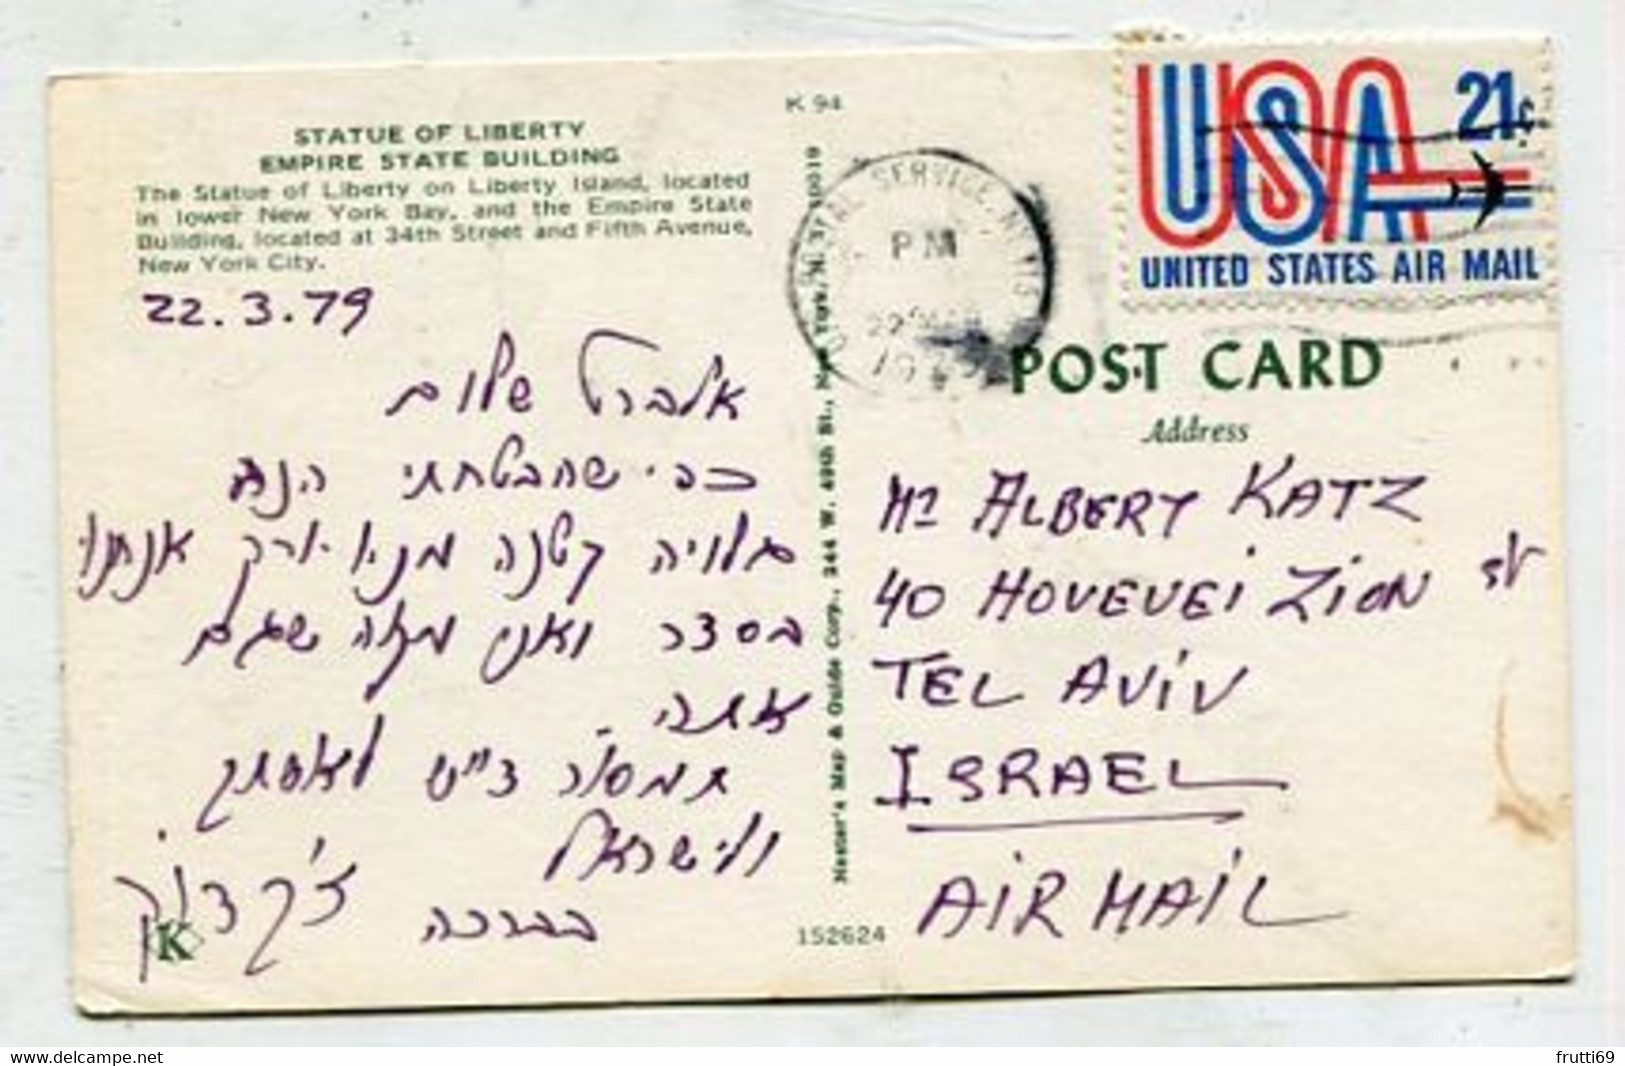 K 94
STATUE OF LIBERTY
EMPIRE STATE BUILDING
The Statue of Liberty on Liberty Island, located
in lower New York Bay, and the Empire State
Building, located at 34th Street and Fifth Avenue,
New York City.
22.3.79
אלברט שלום
כפי שהבטחתי הנה
גלויה קטנה מניו יורק אנחנו
בסדר ואני מקוה שגם
אתה.
תמסור ד"ש לאסתר
ולישראל
בברכה
Nester's Map & Guide Corp., 244 W. 49th St., New York, N. Y. 10019
152624
K
SERVICE, N.Y.
PM
USA 21c
UNITED STATES AIR MAIL
POST CARD
Address
Mr ALBERT KATZ
40 HOVEVEI ZION ST
TEL AVIV
ISRAEL
AIR MAIL
frutti69
the-west-stamps.delcampe.net